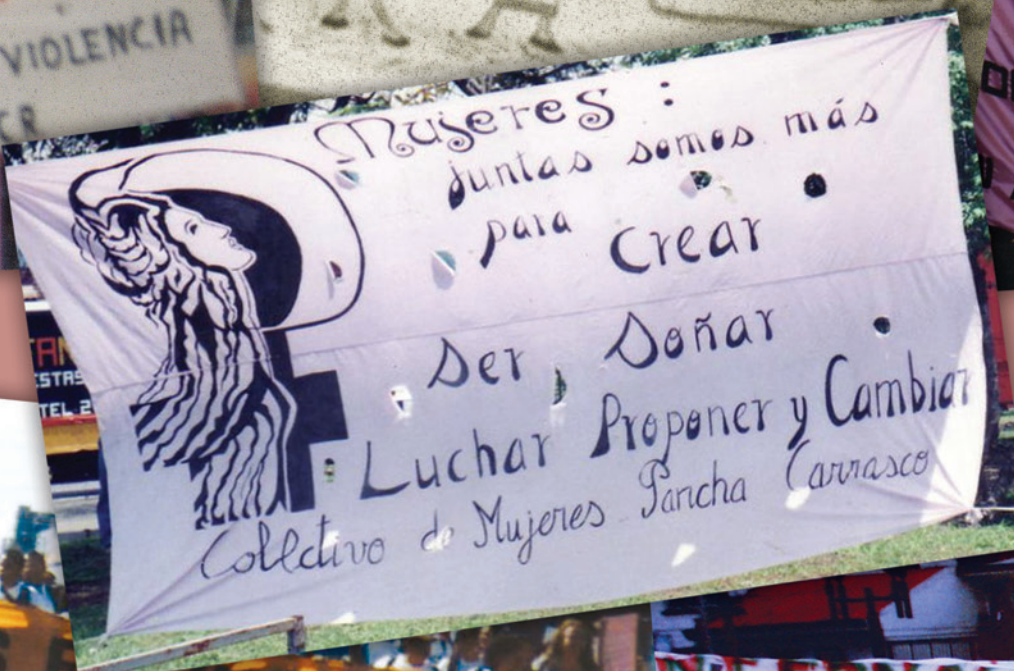 VIOLENCIA
Mujeres:
juntas somos más
para Crear
Ser Soñar
Luchar Proponer y Cambiar
Colectivo de Mujeres Pancha Carrasco
ESTAS
TEL 2